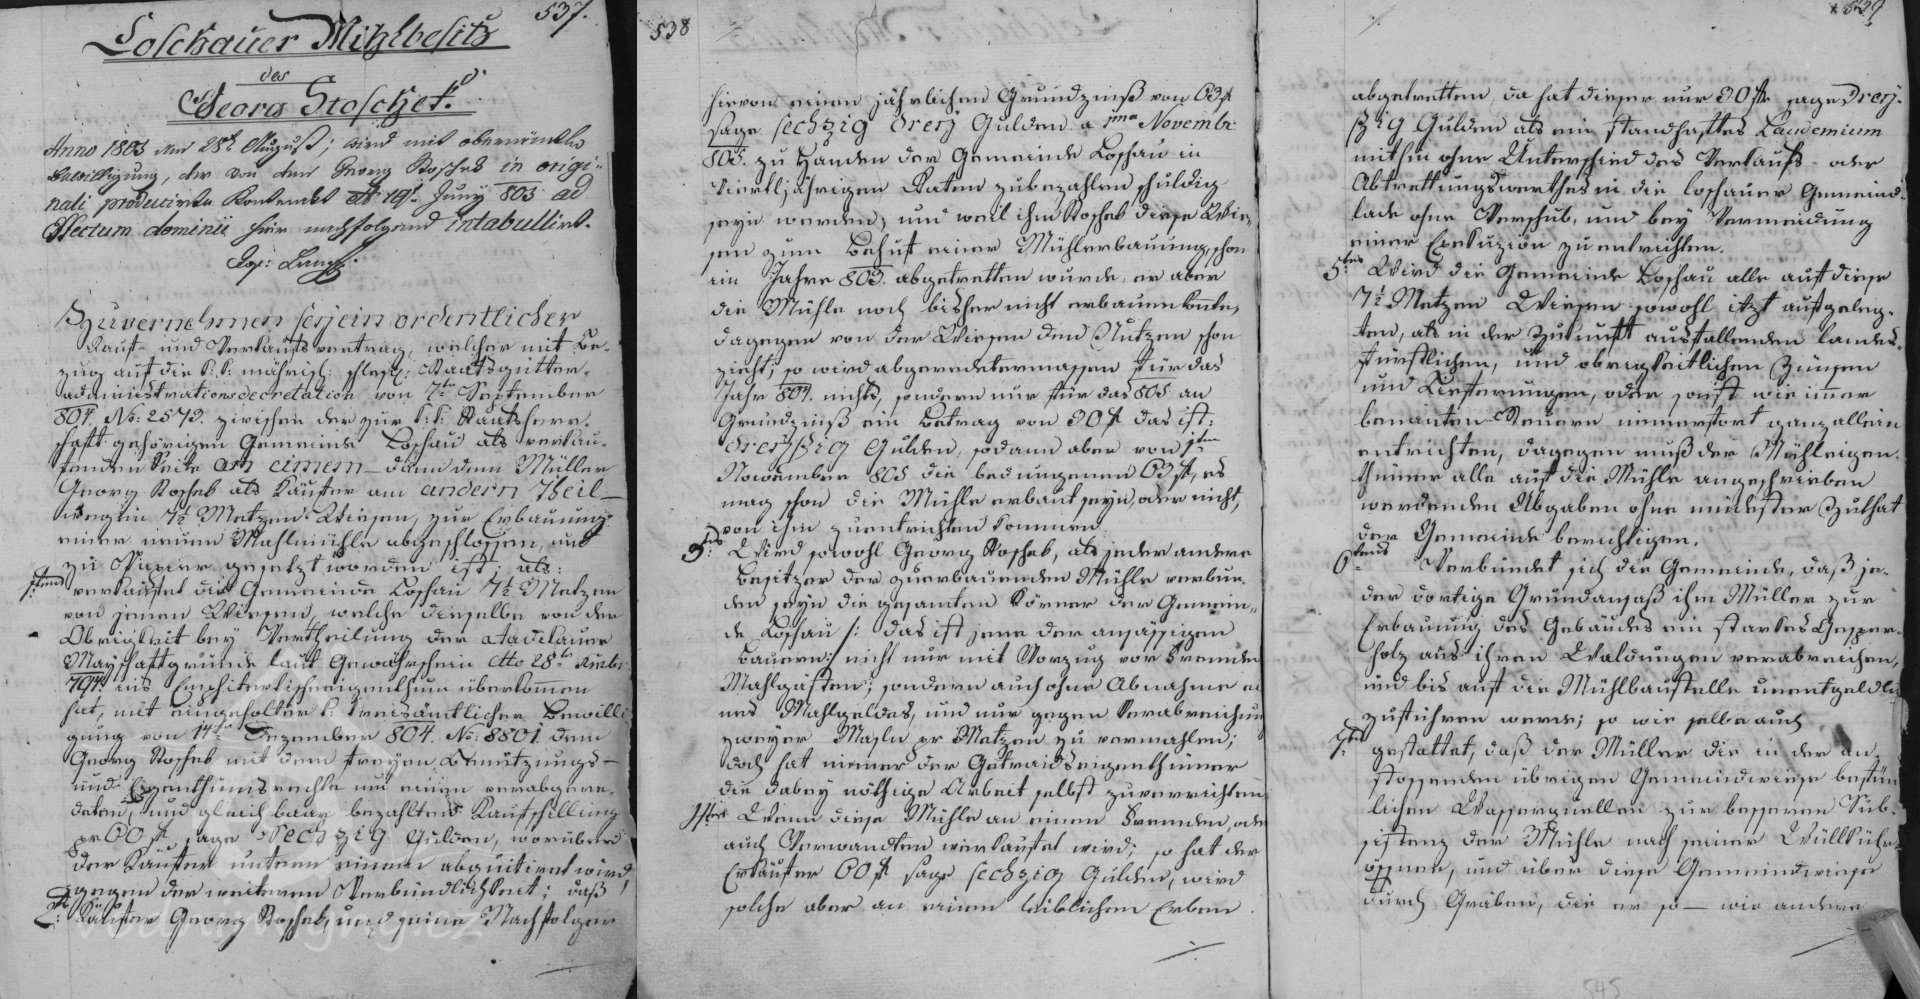 537.
Loschauer Mühlbesitz
des
Georg Stoschek.
Anno 1803 den 28t August; wird mit obrigkeitl.
Bewilligung, der von dem Georg Stoschek in origi-
nali producirte Kontrackt dto 19t Juny 803 ad
Effectum dominii hier nachfolgend intabullirt.
Zuvernehmen sey ein ordentlicher
Kauf- und Verkaufsvertrag, welcher mit Be-
zug auf die k: k: mährisch: schlesis: Staatsgütter-
administrationsdecretation von 7ten September
804 No: 2573. zwischen der zur k: k: Staatsherr-
schaft gehörigen Gemeinde Loschau als verkau-
fenden Seite an einem – dann dem Müller
Georg Stoschek als Käufer am andern Theil –
wegen 7½ Metzen Wiesen, zur Erbauung
einer neuen Mahlmühle abgeschlossen, und
zu Papier gesetzt worden ist; als:
1stens verkaufet die Gemeinde Loschau 7½ Metzen
von jenen Wiesen, welche dieselbe von der
Obrigkeit bey Vertheilung der
Mayrhoffgründe laut Gewährschein dto 28ten
794 ins Emphitevtischeigenthum überkommen
hat, mit eingeholter k: kreisämtlicher Bewilli-
gung von 14ten Dezember 804. No: 8801. dem
Georg Stoschek mit dem freyen Benützungs-
und Eigenthumsrechte um einen verabgere-
deten, und gleich baar bezahlten Kaufschilling
pr 60 f sage Sechzig Gulden, worüber
der Käufer unterm einem abquitirt wird
gegen der weiteren Verbindlichkeit; daß
2t: Käufer Georg Stoschek, und seine Nachfolger
538
hievon einen jährlichen Grundzinß von 63 f
sage sechzig drey Gulden a 1ma Novembr:
805. zu Handen der Gemeinde Loschau in
viertljährigen Raten zubezahlen schuldig
seyn werden; und weil ihm Stoschek diese Wie-
sen zum Behuf einer Mühlerbauung schon
im Jahre 803. abgetretten wurde, er aber
die Mühle noch bisher nicht erbauen konnte,
dagegen von der Wiesen den Nutzen schon
zieht; so wird abgeredetermassen für das
Jahr 804. nichts, sondern nur für das 805 an
Grundzinß ein Betrag von 30 f das ist:
dreyßig Gulden, sodann aber von 1ten
November 805 die bedungenen 63 f, es
mag schon die Mühle erbaut seyn, oder nicht,
von ihm zuentrichten kommen.
3tens: Wird sowohl Georg Stoschek, als jeder andere
Besitzer der zuerbauenden Mühle verbun-
den seyn die gesamten Körner der Gemein-
de Loschau /: das ist jene der ansässigen
Bauern:/ nicht nur mit Vorzug vor fremden
Mahlgästen; sondern auch ohne Abnahme ei-
nes Mahlgeldes, und nur gegen Verabreichung
zweyer Massl pr Metzen zu vermahlen;
doch hat immer der Getraidseigenthümer
die dabey nöthige Arbeit selbst zuverrichten
4tens Wenn diese Mühle an einen Fremden, oder
auch Verwandten verkaufet wird; so hat der
Erkäufer 60 f sage sechzig Gulden, wird
solche aber an einen leiblichen Erben
539
abgetretten, da hat dieser nur 30 f sage Drey-
ßig Gulden als ein standhaftes Laudemium
mithin ohne Unterschied des Verkaufs- oder
Abtrettungswerthes in die loschauer Gemeind-
lade ohne Verschub, und bey Vermeidung
einer Exekuzion zu entrichten.
5tens Wird die Gemeinde Loschau alle auf diese
7½ Metzen Wiesen sowohl itzt aufgeleg-
ten, als in der Zukunft ausfallenden landes-
fürstlichen, und obrigkeitlichen Zünsen
und Lieferungen, oder sonst wie immer
benanten Steuern immerfort ganz allein
entrichten, dagegen muß der Mühleigen-
thümer alle auf die Mühle angeschrieben
werdenden Abgaben ohne mindester Zuthat
der Gemeinde berichtigen.
6tens Verbindet sich die Gemeinde, daß je-
der dortige Grundansaß ihm Müller zur
Erbauung des Gebäudes ein starkes Gesper-
holz aus ihren Waldungen verabreichen,
und bis auf die Mühlbaustelle unentgeldlich
zuführen werde; so wie selbe auch
7tens gestattet, daß der Müller die in der an-
stossenden übrigen Gemeindwiese befünd-
lichen Wasserquellen zur besseren Sub-
sistenz der Mühle nach seiner Willkühr
öffnen, und über diese Gemeindwiese
durch Gräben, die er so – wie andere